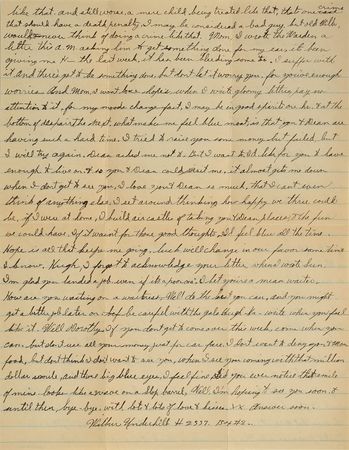 like that. and still worse a mere child being treated like that, that one crime
that should have a death penalty. I may be considered a bad guy, but old Wilber
would never think of doing a crime like that. Mom, I wrote the Warden a
letter this a.m asking him to get something done for my ear, it been
giving me H— the last week, it has been bleeding some to, I suffer with
it. And there's got to be something done, but don't let it worry you, for you've enough
worries. And Mom, I won't have when I write gloomy letters, pay no
attention to it, for my moods change fast, I may be in good spirits one hr. & at the
bottom of despair the next, what makes me feel blue most, is that you & Dean are
having such a hard time. I tried to raise you some money but failed, but
I will try again. Dean asked me not to. But I want to
enough to live on & so you & Dean could visit me, it almost gets me down
when I don't get to see you, I love you & Dean so much, that I can't even
think of anything else, I set around thinking how happy we three could
be, if I were at home, I build air castles of taking you & Dean places, & the fun
we could have. If it wasn't for those good thoughts, I'd feel blue all the time.
Hope is all that keeps me going, luck will change in our favor some time
I know. Hugh, I forgot to acknowledge your letter when I wrote
I'm glad you landed a job even if its a poor one. I bet you're a mean waiter.
How are you waiting on a waitress, Well do the best you can, and you might
get a better job later on hop be careful with the gals laugh ha - write when you feel
like it. Well Dorothy, if you don't get to come over this week, come when you
can, but do I use all your money just for car fare. I don't want to deny you & Mom
food, but don't think I don't want to see you, when I see you coming with that million
dollar smile, and those big blue eyes, I feel fine. Did you ever notice that smile
of mine - looks like a wave on a slop barrel. Well I'm hoping to see you soon, &
until then, bye-bye, with lots & lots of love & kisses. xx Answer soon.
Wilbur Underhill H 2337. Box #2.